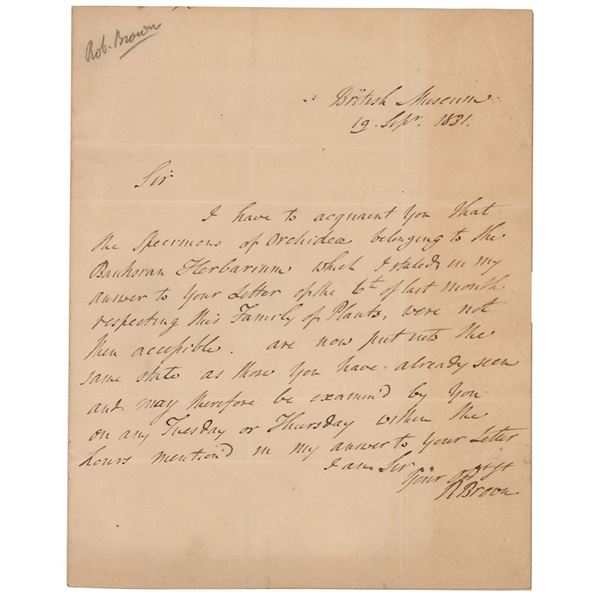 Rob. Brown
British Museum
19. Sepr. 1831.
Sir
I have to acquaint you that
the Specimens of Orchideæ belonging to the
Banksian Herbarium which I stated in my
answer to your Letter of the 6th of last month
respecting this Family of Plants, were not
then accessible. are now put into the
same state as those you have already seen
and may therefore be examin'd by you
on any Tuesday or Thursday within the
hours mention'd in my answer to your Letter
I am Sir
Your
RBrown